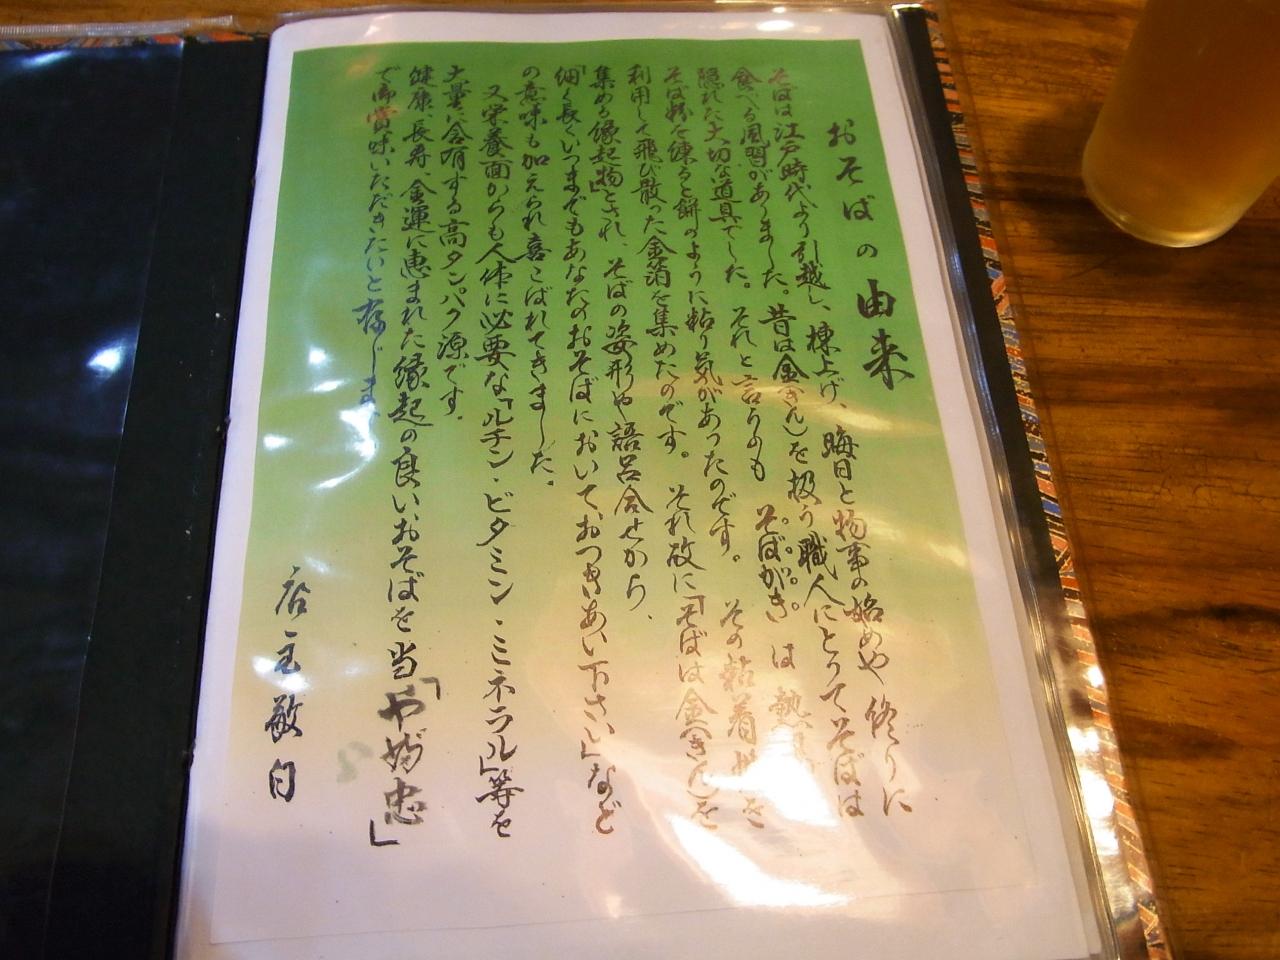 おそばの由来
そばは江戸時代より引越し、棟上げ、晦日と物事の始めや終りに
食べる風習がありました。昔は金(きん)を扱う職人にとってそばは
隠れた大切な道具でした。それと言うのも そばがき は熱
そば粉を練ると餅のように粘り気があったのです。その粘着性を
利用して飛び散った金箔を集めたのです。それ故に「そばは金(きん)を
集める縁起物」とされ、そばの姿形や語呂合せから、
「細く長くいつまでもあなたのおそばにおいて、おつきあい下さい」など
の意味も加えられ喜こばれてきました。
又栄養面からも人体に必要な「ルチン・ビタミン・ミネラル」等を
大量に含有する高タンパク源です。
健康、長寿、金運に恵まれた縁起の良いおそばを当「や 忠」
で御賞味いただきたいと存じます
店主敬白